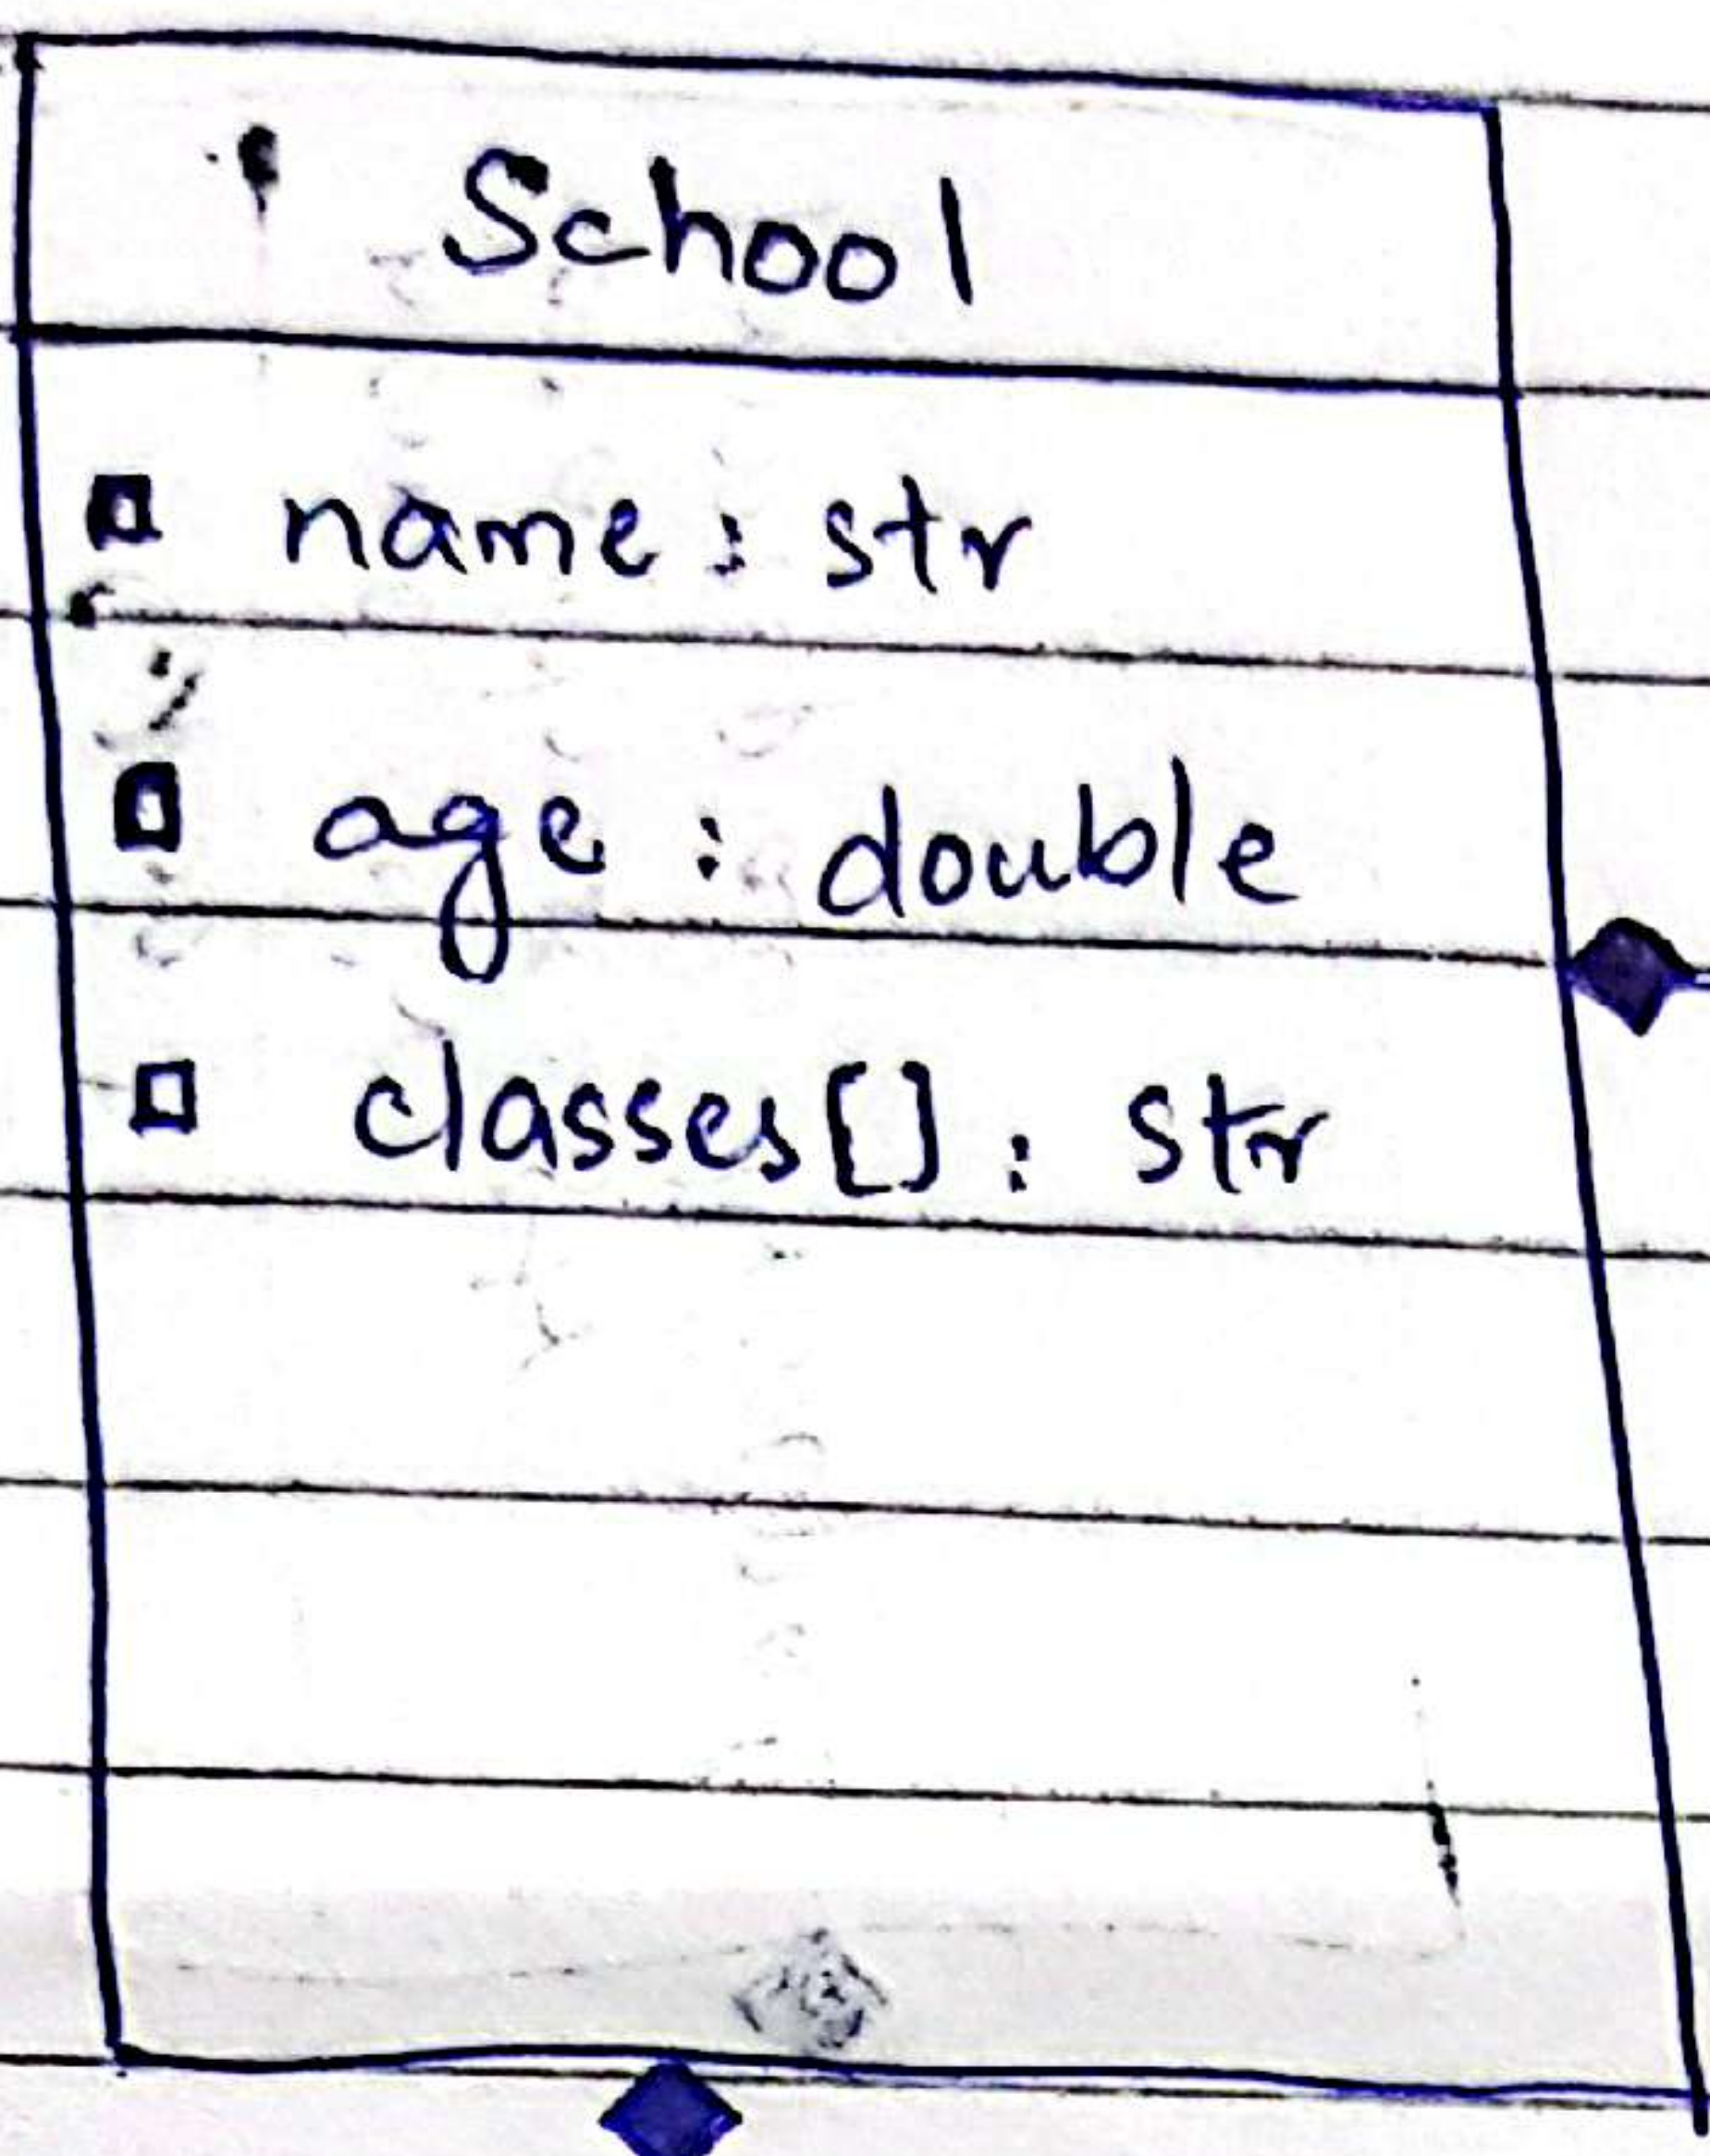 School
name : str
age : double
classes[] : str